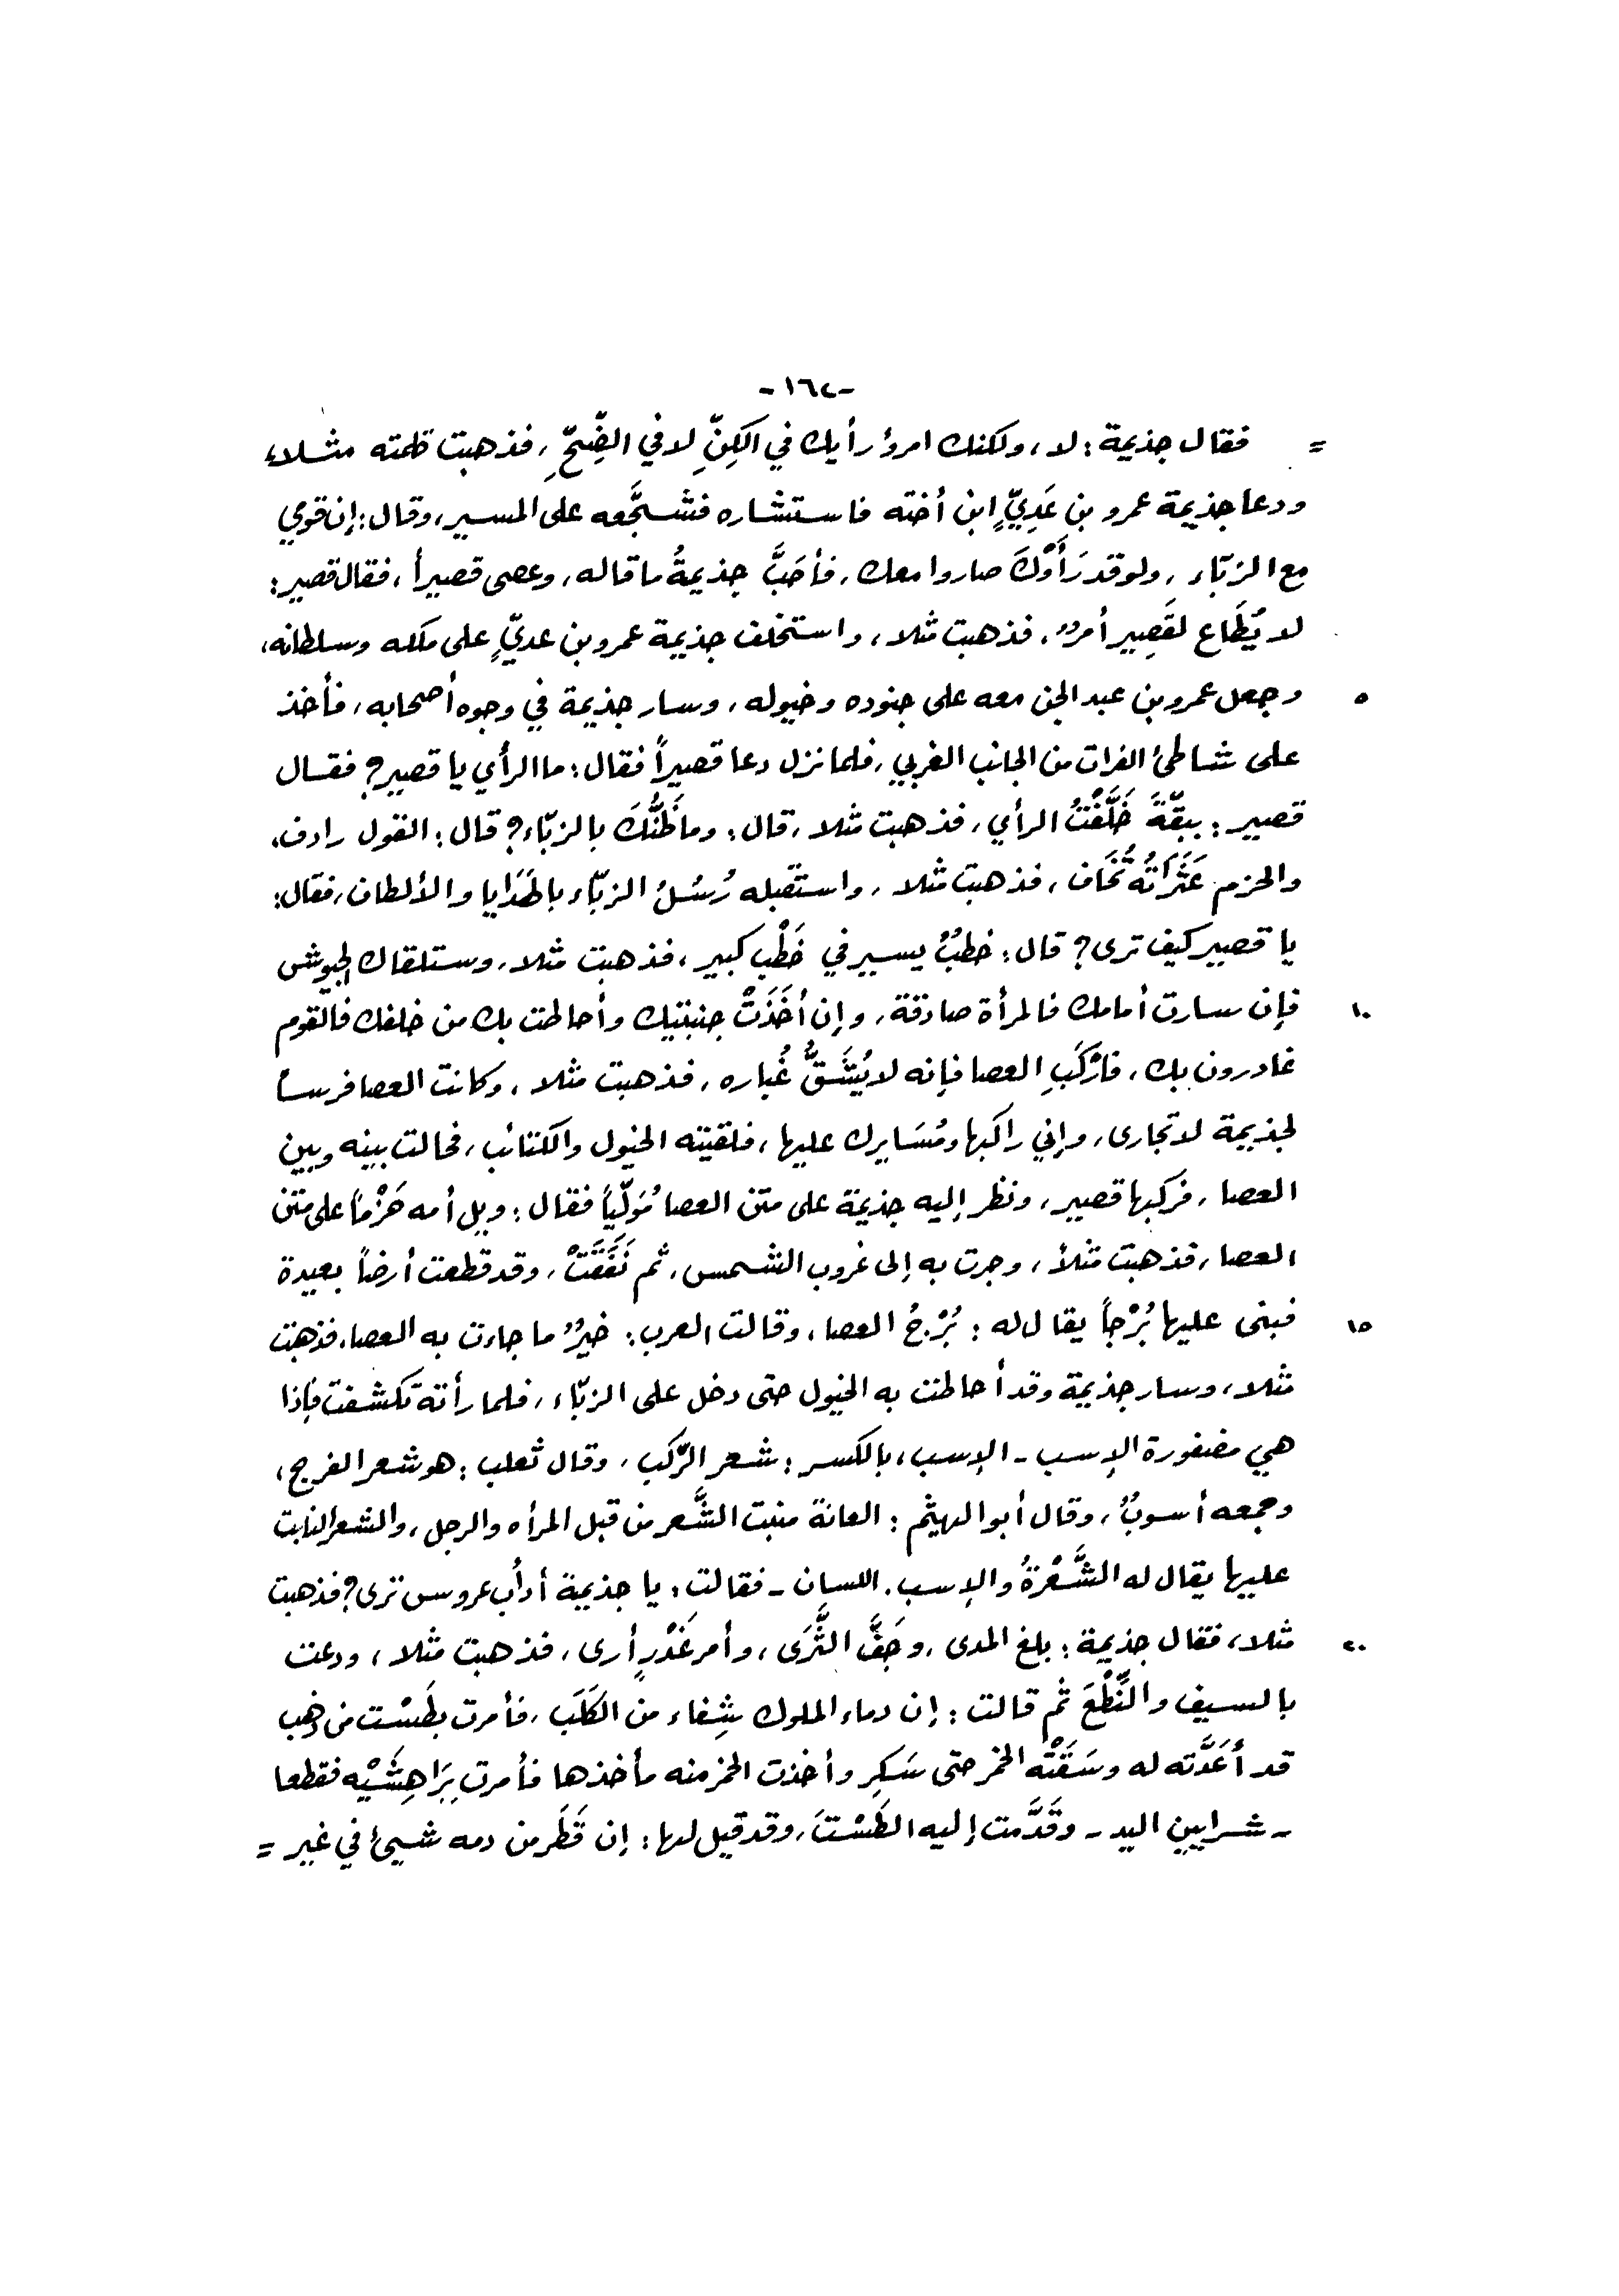 -١٦٢-
= فقال جذيمة: لا، ولكنك امرؤ رأيك في الكِنِّ لا في الضِّحِّ، فذهبت كلمته مثلاً،
ودعا جذيمة عمرو بن عَدِيٍّ ابن أخته فاستشاره فشجَّعه على المسير، وقال: إن قومي
مع الزبّاء، ولو قد رَأَوْكَ صاروا معك، فأحَبَّ جذيمةُ ما قاله، وعصى قصيراً، فقال قصير:
لا يُطَاع لقَصِير أمرٌ، فذهبت مثلا، واستخلف جذيمة عمرو بن عديٍّ على ملكه وسلطانه،
٥ وجعل عمرو بن عبد الجن معه على جنوده وخيوله، وسار جذيمة في وجوه أصحابه، فأخذ
على شاطئ الفرات من الجانب الغربي، فلما نزل دعا قصيراً فقال: ما الرأي يا قصير؟ فقال
قصير: ببَقَّةَ خَلَّفْتُ الرأي، فذهبت مثلا، قال: وما ظَنُّكَ بالزبّاء؟ قال: القول رادف،
والحزم عَثَرَاتُه تُخَاف، فذهبت مثلا، واستقبله رُسُلُ الزبّاء بالهَدَايا والألطاف، فقال:
يا قصير كيف ترى؟ قال: خطبٌ يسير في خَطْب كبير، فذهبت مثلا، وستلقاك الجيوش
١٠ فإن سارت أمامك فالمرأة صادقة، وإن أخَذَتْ جنبتيك وأحاطت بك من خلفك فالقوم
غادرون بك، فارْكَبِ العصا فإنه لا يُشَقُّ غُباره، فذهبت مثلا، وكانت العصا فرساً
لجذيمة لا تجارى، وإني راكبها ومُسَايرك عليها، فلقيته الخيول والكتائب، فحالت بينه وبين
العصا، فركبها قصير، ونظر إليه جذيمة على متن العصا مُوَلّياً فقال: ويل أمه حَزْماً على متن
العصا، فذهبت مثلاً، وجرت به إلى غروب الشمس، ثم نَفَقَتْ، وقد قطعت أرضاً بعيدة
١٥ فبنى عليها بُرْجاً يقال له: بُرْجُ العصا، وقالت العرب: خيرٌ ما جاءت به العصا، فذهبت
مثلا، وسار جذيمة وقد أحاطت به الخيول حتى دخل على الزبّاء، فلما رأته تكشفت فإذا
هي مضفورة الإسب - الإسب، بالكسر: شعر الرَّكَب، وقال ثعلب: هو شعر الفرج،
وجمعه أسوبٌ، وقال أبو الهيثم: العانة منبت الشَّعر من قبل المرأه والرجل، والشعر النابت
عليها يقال له الشَّعْرَةُ والإسب. اللسان - فقالت: يا جذيمة أدأب عروس ترى؟ فذهبت
٢٠ مثلا، فقال جذيمة: بلغ المدى، وجَفَّ الثَّرَى، وأمر غَدْرٍ أرى، فذهبت مثلا، ودعت
بالسيف والنِّطْعَ ثم قالت: إن دماء الملوك شِفاء من الكَلَب، فأمرت بطَسْت من ذهب
قد أعَدَّته له وسَقَتْه الخمر حتى سَكِر وأخذت الخمر منه مأخذها فأمرت بِرَاهِشَيْه فقطعا
- شرايين اليد - وقَدَّمت إليه الطَسْتَ، وقد قيل لها: إن قَطَر من دمه شيئ في غير =